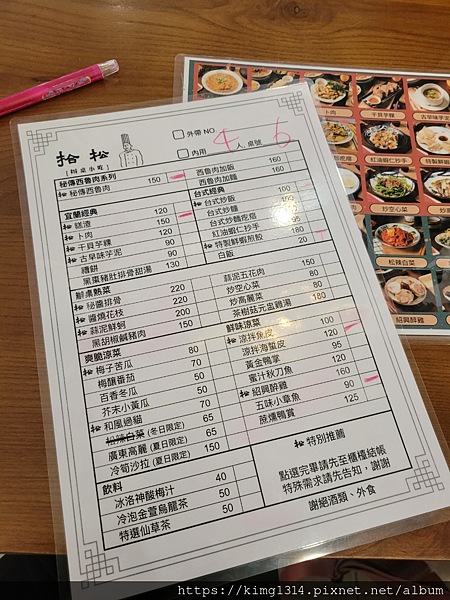 拾松
[辦桌小吃]
外帶 NO.
內用 4 人, 桌號 6
秘傳西魯肉系列
秘傳西魯肉 150
西魯肉加飯 160
西魯肉加麵 160
宜蘭經典
糕渣 120
卜肉 150
干貝芋粿 120
古早味芋泥 90
禮餅 90
黑棗豬肚排骨甜湯 130
台式經典
台式炒飯 100
台式炒麵 100
台式炒麵疙瘩
紅油蝦仁抄手
特製鮮蝦煎餃 180
白飯 20
辦桌熱菜
秘醬排骨 220
醬燒花枝 220
蒜泥鮮蚵 200
黑胡椒鹹豬肉 150
蒜泥五花肉 150
炒空心菜 80
炒高麗菜 80
茶樹菇元盅雞湯 180
爽脆涼菜
梅子苦瓜 80
梅釀番茄 70
百香冬瓜 50
芥末小黃瓜 50
和風過貓 70
松辣白菜 (冬日限定) 65
廣東高麗 (夏日限定) 65
冷筍沙拉 (夏日限定) 150
鮮味涼菜
涼拌魚皮 100
涼拌海蜇皮 120
黃金鴨掌 95
蜜汁秋刀魚 120
紹興醉雞 160
五味小章魚 90
蔗燻鴨賞 125
飲料
冰洛神酸梅汁 40
冷泡金萱烏龍茶 50
特選仙草茶 50
拾松 特別推薦
點選完畢請先至櫃檯結帳
特殊需求請先告知，謝謝
謝絕酒類、外食
卜肉
干貝芋粿
古早味芋泥
紅油蝦仁抄手
炒空心菜
松辣白菜
紹興醉雞
https://kimg1314.pixnet.net/album